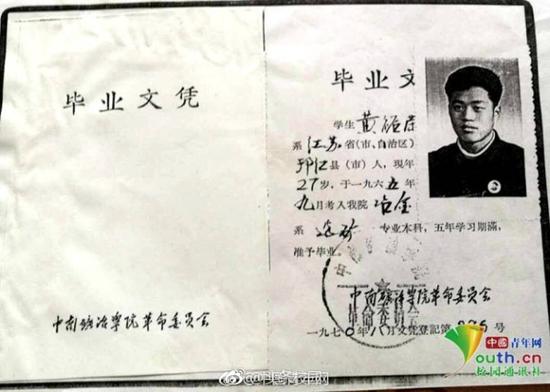 毕业文凭
中南矿冶学院革命委员会
毕业文
学生 黄
系江苏省(市、自治区)
邗江县(市)人，现年
27岁，于一九六五年
九月考入我院冶金
系选矿专业本科，五年学习期满，
准予毕业。
中南矿冶学院革命委员会
一九七〇年八月文凭登记第 号
中国青年网
youth.cn
校园通讯社